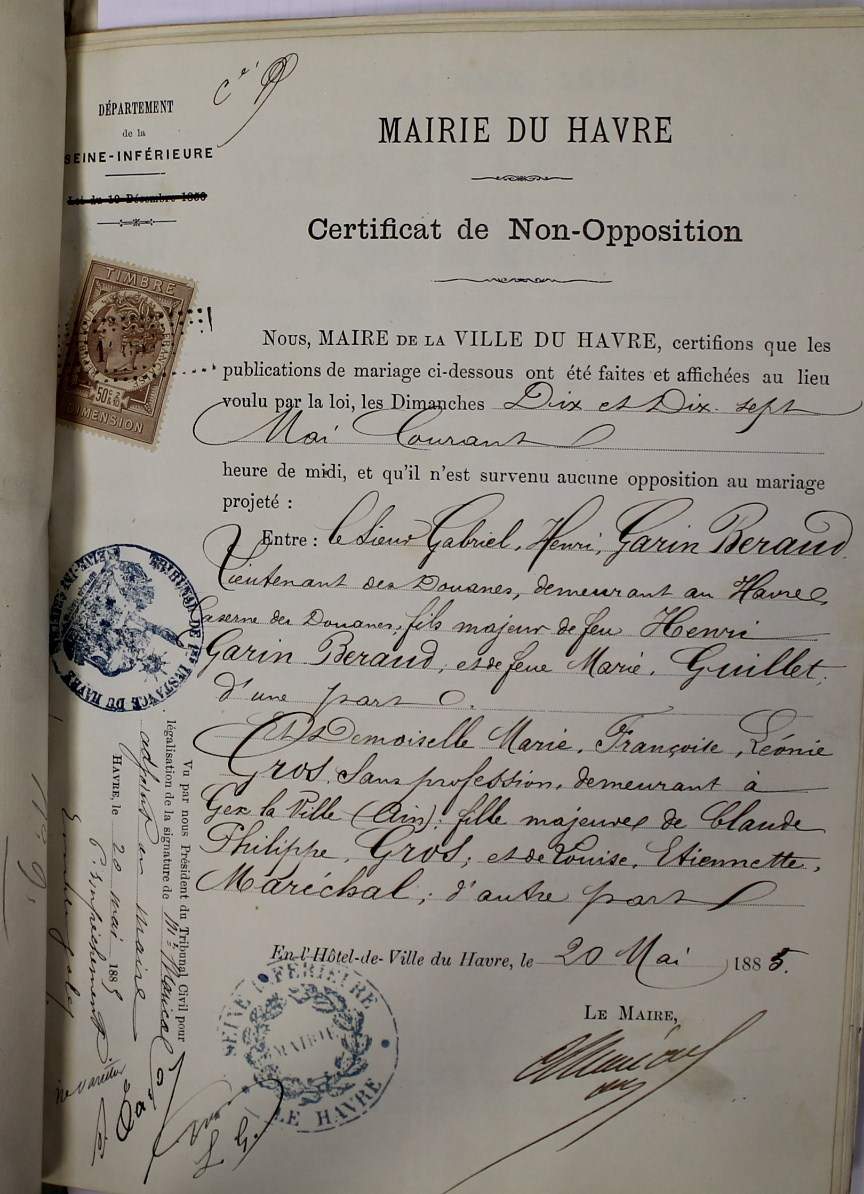 DÉPARTEMENT
de la
SEINE-INFÉRIEURE
Loi du 10 Décembre 1850
TIMBRE
50c
DIMENSION
MAIRIE DU HAVRE
Certificat de Non-Opposition
Nous, MAIRE DE LA VILLE DU HAVRE, certifions que les
publications de mariage ci-dessous ont été faites et affichées au lieu
voulu par la loi, les Dimanches Dix et Dix-sept
Mai Courant
heure de midi, et qu'il n'est survenu aucune opposition au mariage
projeté :
Entre : le Sieur Gabriel, Henri, Garin Beraud
Lieutenant des Douanes, demeurant au Havre,
Caserne des Douanes, fils majeur de feu Henri
Garin Beraud, et de feue Marie, Guillet,
d'une part
Et Demoiselle Marie, Françoise, Léonie
Gros, Sans profession, demeurant à
Gex la Ville (Ain), fille majeure de Claude
Philippe, Gros, et de Louise, Etiennette,
Maréchal, d'autre part
En l'Hôtel-de-Ville du Havre, le 20 Mai 1885.
LE MAIRE,
TRIBUNAL DE 1re INSTANCE DU HAVRE
SEINE INFÉRIEURE
MAIRIE
LE HAVRE
Vu par nous Président du Tribunal Civil pour
légalisation de la signature de Mr
adjoint au maire
HAVRE, le 20 mai 1885
P. empêchement